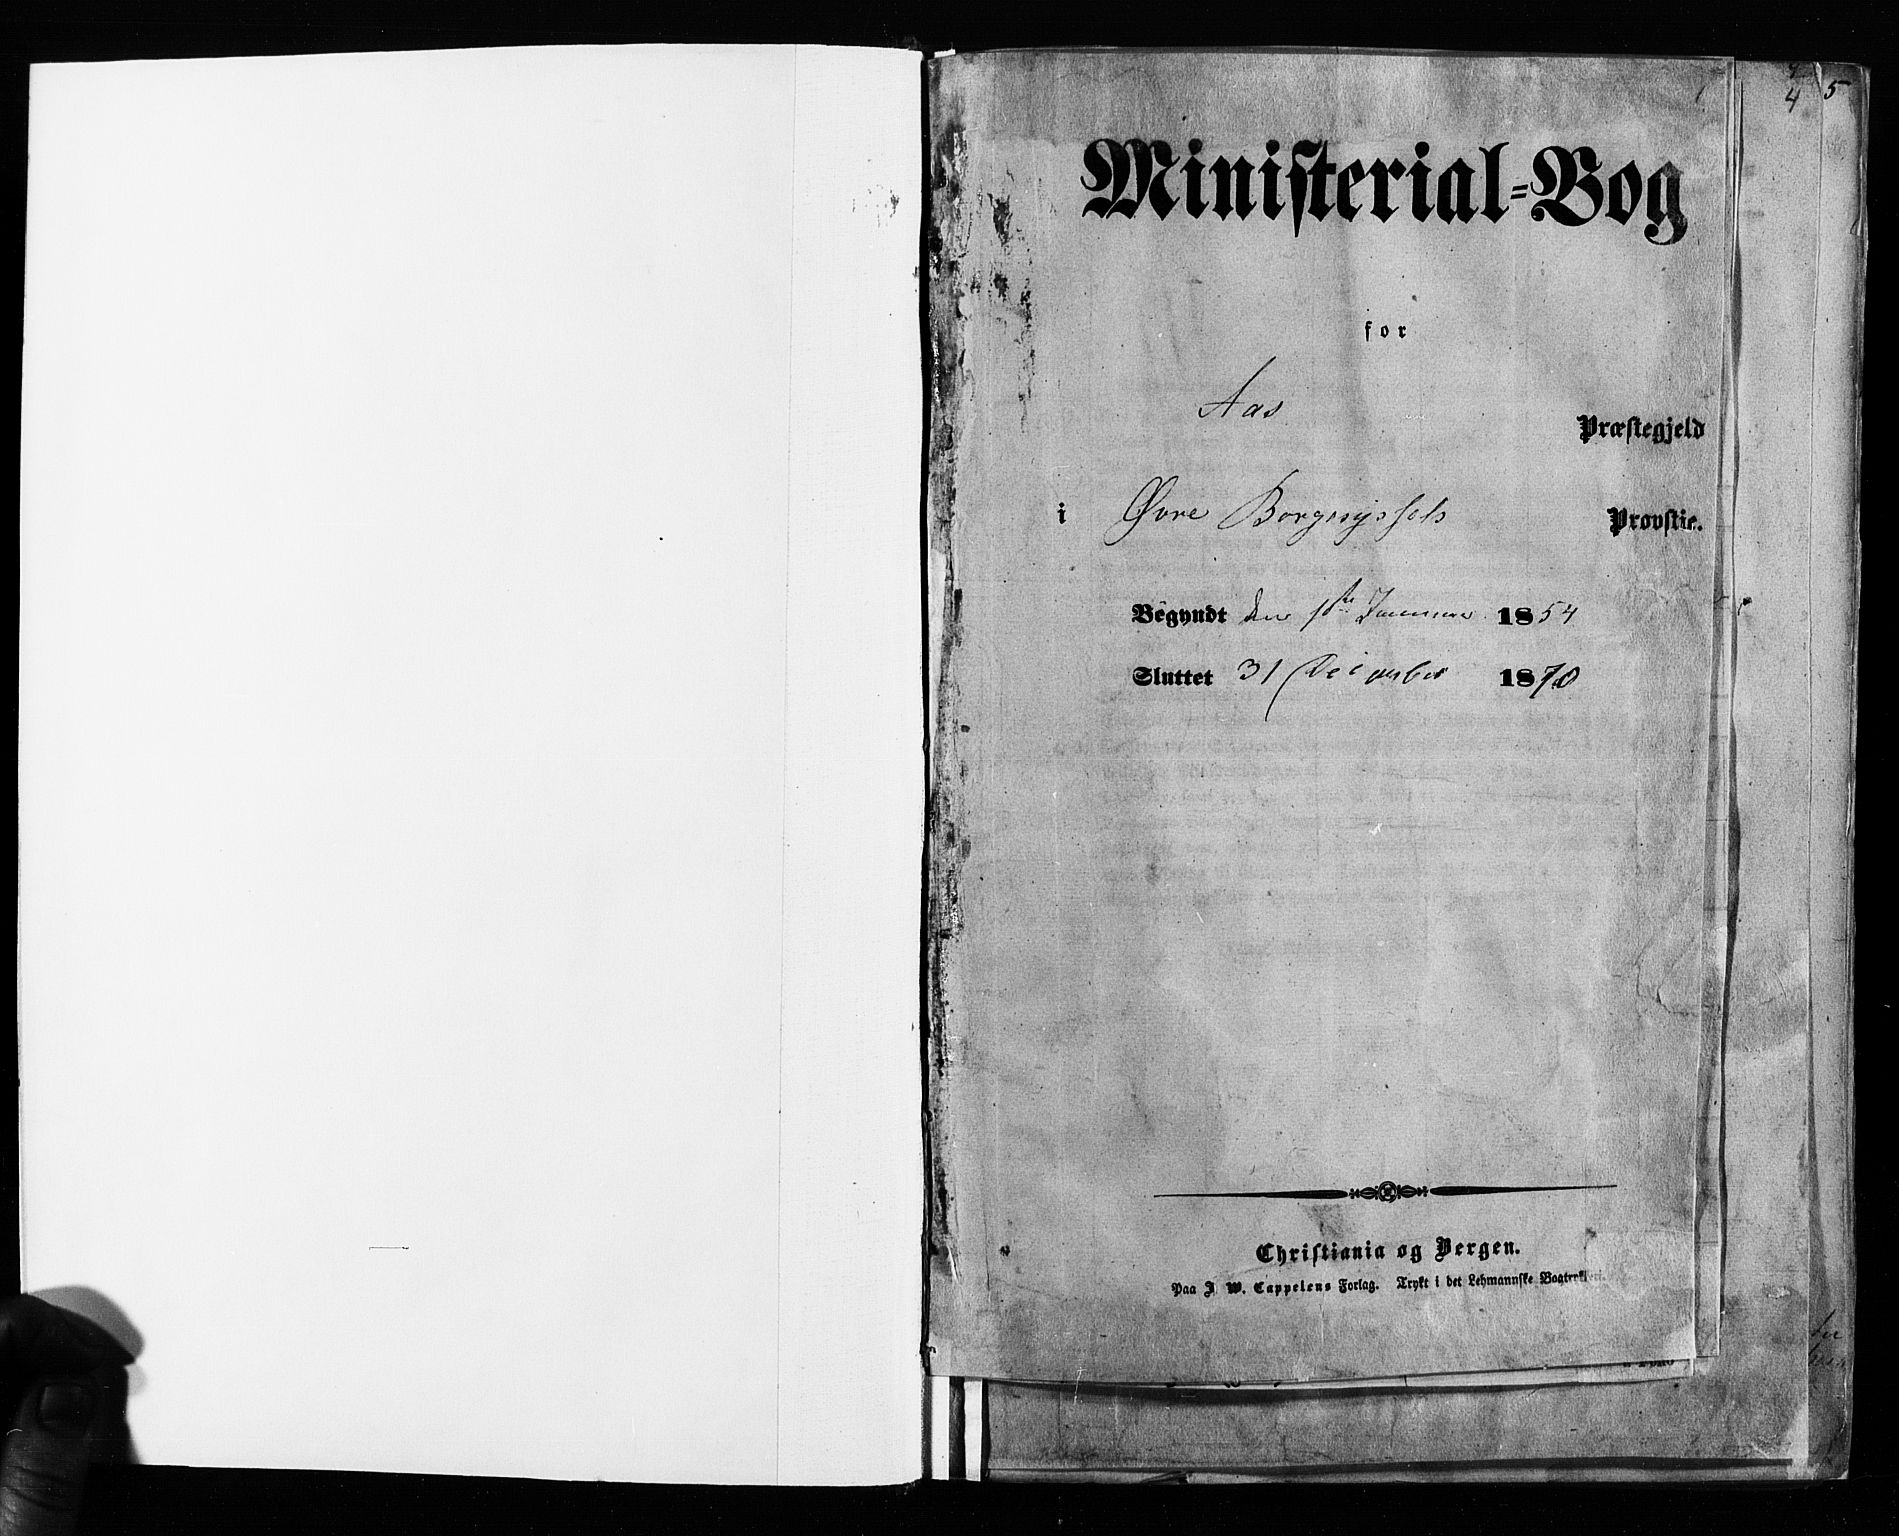 4 5
Ministerial-Bog
for
Aas Præstegjeld
i Øvre Borgesyssels Provstie.
Begyndt den 1ste Januar 1854
Sluttet 31 December 1870
Christiania og Bergen.
Paa J. W. Cappelens Forlag. Trykt i det Lehmannske Bogtrykkeri.